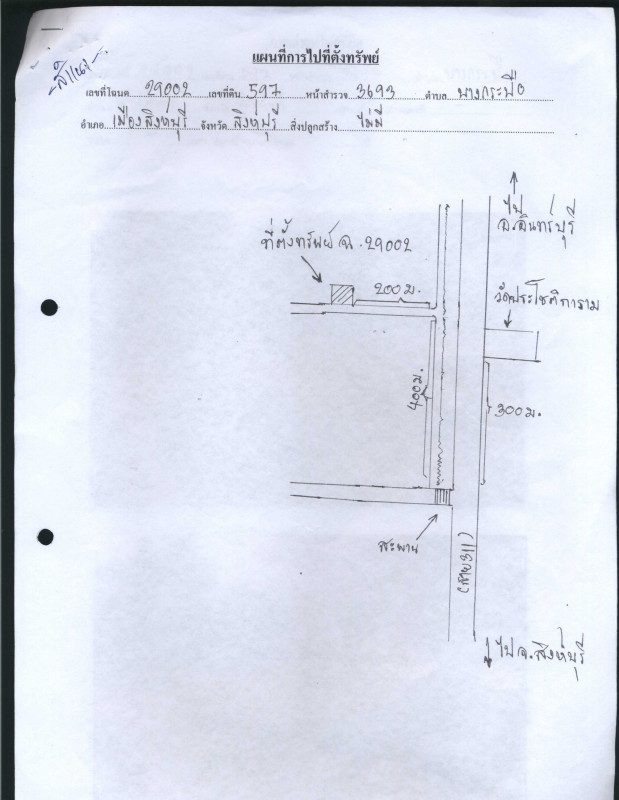 สำเนา
แผนที่การไปที่ตั้งทรัพย์
เลขที่โฉนด 29002 เลขที่ดิน 597 หน้าสำรวจ 3693 ตำบล บางกระบือ
อำเภอ เมืองสิงห์บุรี จังหวัด สิงห์บุรี สิ่งปลูกสร้าง ไม่มี
ไป
อ.อินทร์บุรี
ที่ตั้งทรัพย์ ฉ. 29002
200 ม.
วัดประโชติการาม
400 ม.
300 ม.
สะพาน
(สาย 311)
ไป จ.สิงห์บุรี